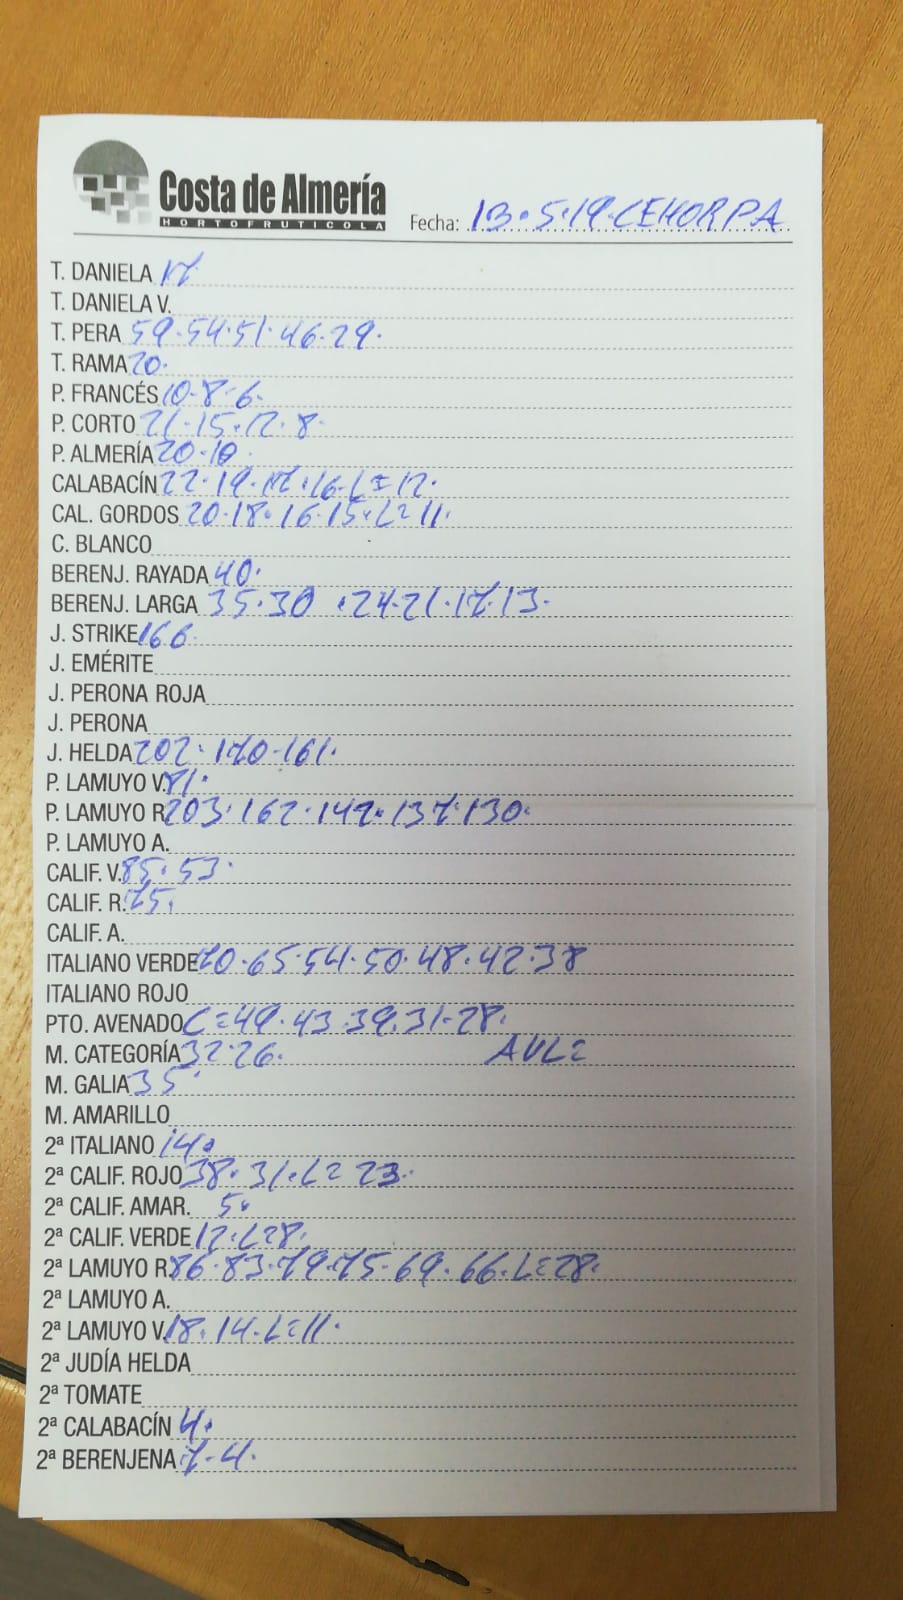 Costa de Almería
HORTOFRUTICOLA
Fecha: 13.5.19.CEHORPA
T. DANIELA 17
T. DANIELA V.
T. PERA 59.54.51.46.29.
T. RAMA 20.
P. FRANCÉS 10.8.6.
P. CORTO 21.15.12.8.
P. ALMERÍA 20.10.
CALABACÍN 22.19.17.16.L=12.
CAL. GORDOS 20.18.16.15.L=11.
C. BLANCO
BERENJ. RAYADA 40.
BERENJ. LARGA 35.30 .24.21.17.13.
J. STRIKE 166.
J. EMÉRITE
J. PERONA ROJA
J. PERONA
J. HELDA 202.170.161.
P. LAMUYO V. 81.
P. LAMUYO R. 203.162.142.137.130.
P. LAMUYO A.
CALIF. V. 85.53.
CALIF. R. 75.
CALIF. A.
ITALIANO VERDE 70.65.54.50.48.42.38
ITALIANO ROJO
PTO. AVENADO C=49.43.39.31.28.
M. CATEGORÍA 32.26. AVL=
M. GALIA 35.
M. AMARILLO
2ª ITALIANO 14.
2ª CALIF. ROJO 38.31.L=23.
2ª CALIF. AMAR. 5.
2ª CALIF. VERDE 12.L=8.
2ª LAMUYO R. 86.83.79.75.69.66.L=28.
2ª LAMUYO A.
2ª LAMUYO V. 18.14.L=11.
2ª JUDÍA HELDA
2ª TOMATE
2ª CALABACÍN 4.
2ª BERENJENA 7.4.